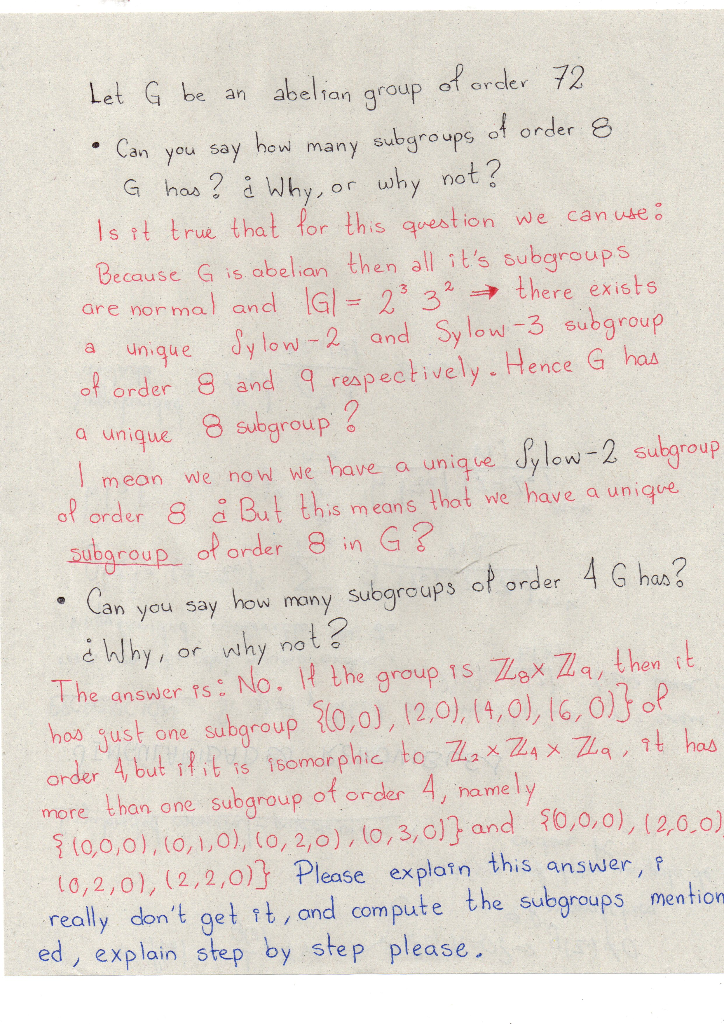 Let G be an abelian group of order 72
• Can you say how many subgroups of order 8
G has? ¿ Why, or why not?
Is it true that for this question we can use:
Because G is abelian then all it's subgroups
are normal and |G| = 2³ 3² → there exists
a unique Sylow-2 and Sylow-3 subgroup
of order 8 and 9 respectively. Hence G has
a unique 8 subgroup?
I mean we now we have a unique Sylow-2 subgroup
of order 8 ¿ But this means that we have a unique
subgroup of order 8 in G?
• Can you say how many subgroups of order 4 G has?
¿ Why, or why not?
The answer is: No. If the group is ℤ₈ x ℤ₉, then it
has just one subgroup {(0,0), (2,0), (4,0), (6,0)} of
order 4, but if it is isomorphic to ℤ₂ x ℤ₄ x ℤ₉, it has
more than one subgroup of order 4, namely
{(0,0,0), (0,1,0), (0,2,0), (0,3,0)} and {(0,0,0), (2,0,0)
(0,2,0), (2,2,0)} Please explain this answer, i
really don't get it, and compute the subgroups mention
ed, explain step by step please.